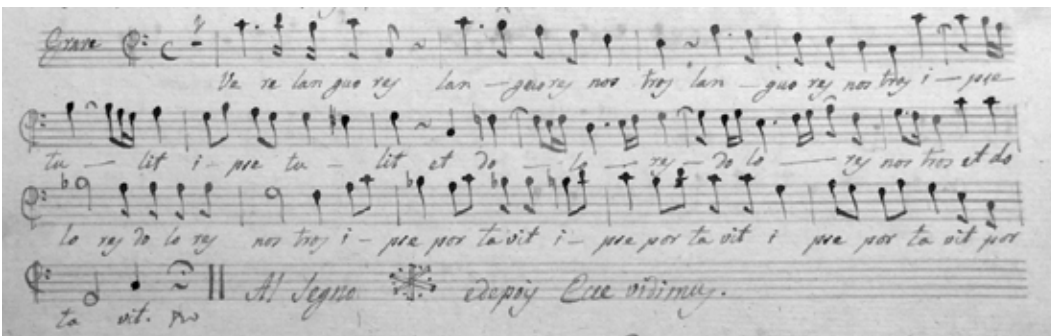 Grave
Ve re lan guo res lan - guores nos tros lan - guo res nos tros i - pse
tu - lit i - pse tu - lit et do - lo - res - do lo - res nos tros et do
lo res do lo res nos tros i - pse por ta vit i - pse por ta vit i pse por ta vit por
ta vit.
Al Segno edepois Ecce vidimus.